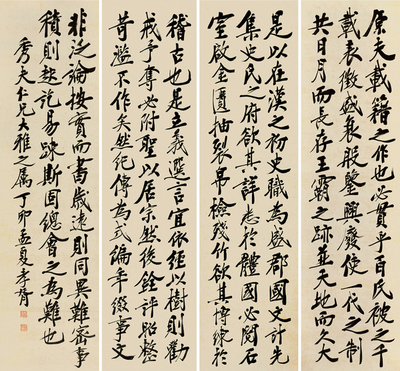 原夫載籍之作也必貫乎百氏被之千
載表徵盛衰殷鑒興廢使一代之制
共日月而長存王霸之跡並天地而久大
是以在漢之初史職為盛郡國文計先
集史氏之府欲其詳悉於體國必閱石
室啟金匱抽裂帛檢殘竹欲其博練於
稽古也是立義選言宜依經以樹則勸
戒予奪必附聖以居宗然後銓評昭整
苛濫不作矣然紀傳為式編年綴事文
非泛論按實而書歲遠則同異難密事
積則起訖易疎斯固總會之為難也
秀夫仁兄大雅之屬丁卯孟夏孝胥